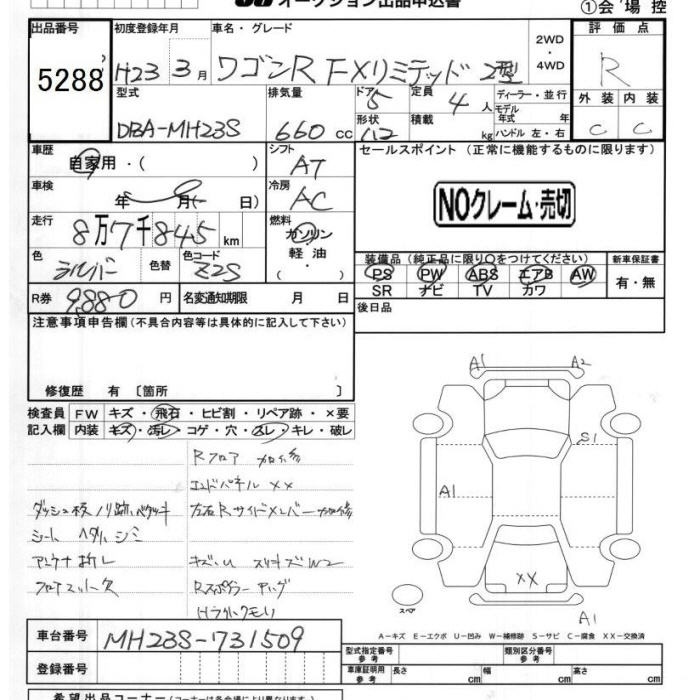 オークション出品申込書
①会場控
出品番号 初度登録年月 車名・グレード 2WD・4WD 評価点
5288 H23 3月 ワゴンR FXリミテッド 2型 R
型式 排気量 ドア 5 定員 4人 ディーラー・並行 外装 内装
DBA-MH23S 660cc 形状 積載 kg モデル年式 年 ハンドル 左・右 C C
車歴 自家用・( ) シフト AT セールスポイント (正常に機能するものに限ります)
車検 年 月( 日) 冷房 AC NOクレーム・売切
走行 8万7千845km 燃料 ガソリン 軽油 ・( )
装備品 (純正品に限り○をつけてください) 新車保証書
色 シルバー 色替 色コード Z2S PS PW ABS エアB AW 有・無
SR ナビ TV カワ
R券 9,880円 名変通知期限 月 日 後日品
注意事項申告欄 (不具合内容等は具体的に記入して下さい)
修復歴 有 〔箇所 〕
検査員 FW キズ・飛石・ヒビ割・リペア跡・×要
記入欄 内装 キズ・汚レ・コゲ・穴・スレ・キレ・破レ
Rフロア 加修
エンドパネル XX
ダッシュ板ノリ跡ベタツキ 左右Rサイドメンバー加修
シート ヘタリ シミ
アンテナ折レ キズ・U スリキズW2
フロアマット欠
A1 A2
S1
A1
XX
スペア
A1
A-キズ E-エクボ U-凹み W-補修跡 S-サビ C-腐食 XX-交換済
車台番号 MH23S-731509
登録番号
型式指定番号 参考 類別区分番号 参考
車庫証明用 参考 長さ cm 幅 cm 高さ cm
希望出品コーナー(コーナーは各会場により異なります)